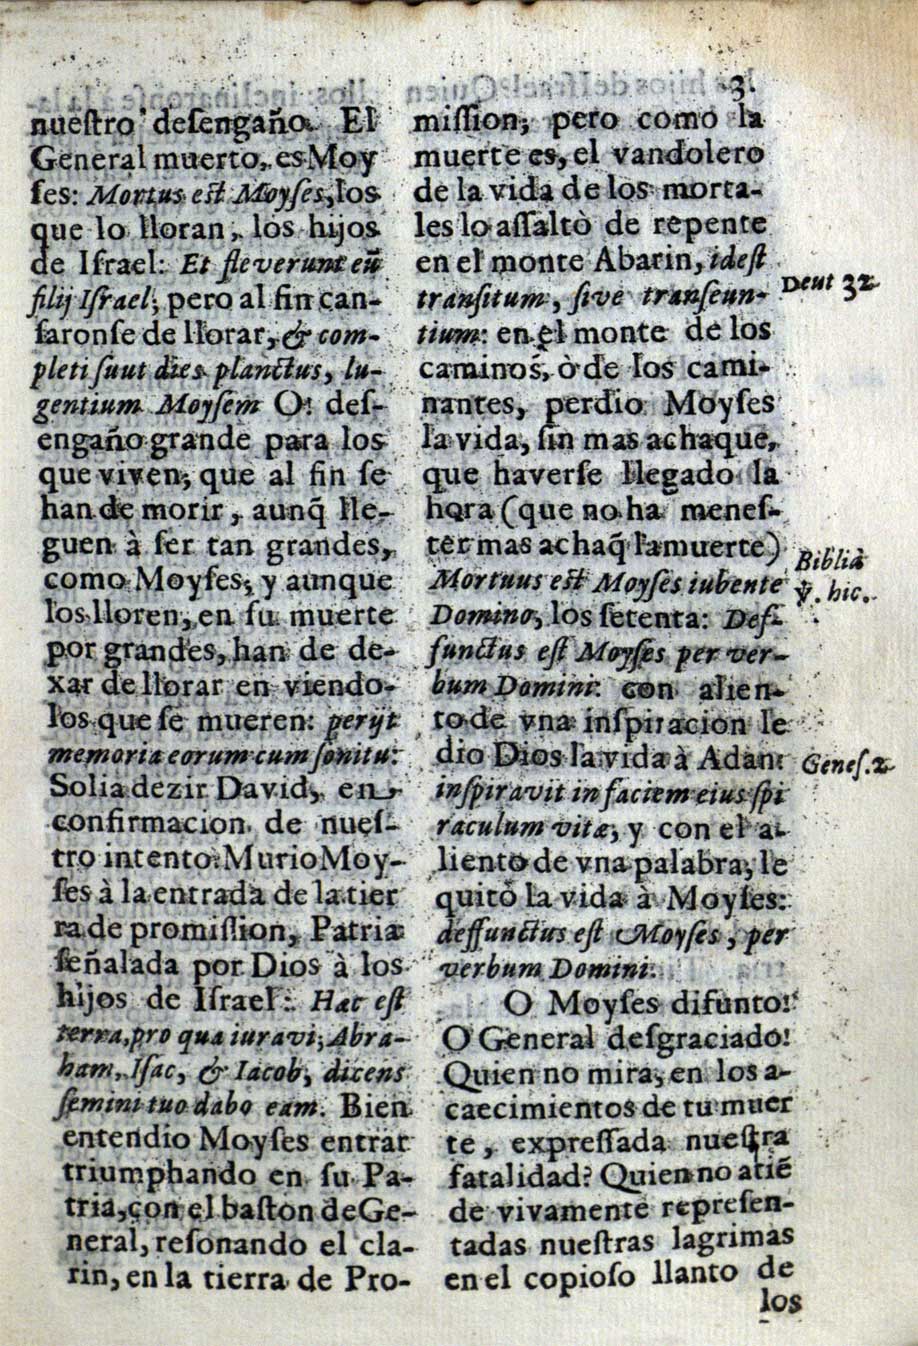 3.
nuestro desengaño. El
General muerto, es Moy
ses: Mortus est Moyses, los
que lo lloran, los hijos
de Israel: Et fleverunt eũ
filij Israel; pero al fin can-
saronse de llorar, & com-
pleti suut dies planctus, lu-
gentium Moysem O! des-
engaño grande para los
que viven; que al fin se
han de morir, aunq̃ lle-
guen à ser tan grandes,
como Moyses; y aunque
los lloren, en su muerte
por grandes, han de de-
xar de llorar en viendo-
los que se mueren: perijt
memoria eorum cum sonitu:
Solia dezir David, en
confirmacion de nues-
tro intento: Murio Moy-
ses à la entrada de la tier
ra de promission, Patria
señalada por Dios à los
hijos de Israel: Hac est
terra, pro qua iuravi; Abra-
ham, Isac, & Iacob, dicens
semini tuo dabo eam. Bien
entendio Moyses entrar
triumphando en su Pa-
tria, con el baston de Ge-
neral, resonando el cla-
rin, en la tierra de Pro-
mission; pero como la
muerte es, el vandolero
de la vida de los morta-
les lo assaltò de repente
en el monte Abarin, idest
transitum, sive transeun-
tium: en el monte de los
caminos, ò de los cami-
nantes, perdio Moyses
la vida, sin mas achaque,
que haverse llegado la
hora (que no ha menes-
ter mas achaq̃ la muerte)
Mortuus est Moyses iubente
Domino, los setenta: Def-
functus est Moyses per ver-
bum Domini: con alien-
to de vna inspiracion le
dio Dios la vida à Adan:
inspiravit in faciem eius spi
raculum vitæ; y con el a-
liento de vna palabra, le
quitò la vida à Moyses:
deffunctus est Moyses, per
verbum Domini.
O Moyses difunto!
O General desgraciado!
Quien no mira, en los a-
caecimientos de tu muer
te, expressada nuestra
fatalidad? Quien no atiẽ
de vivamente represen-
tadas nuestras lagrimas
en el copioso llanto de
los
Deut 32.
Biblià
℣. hic.
Genes. 2.